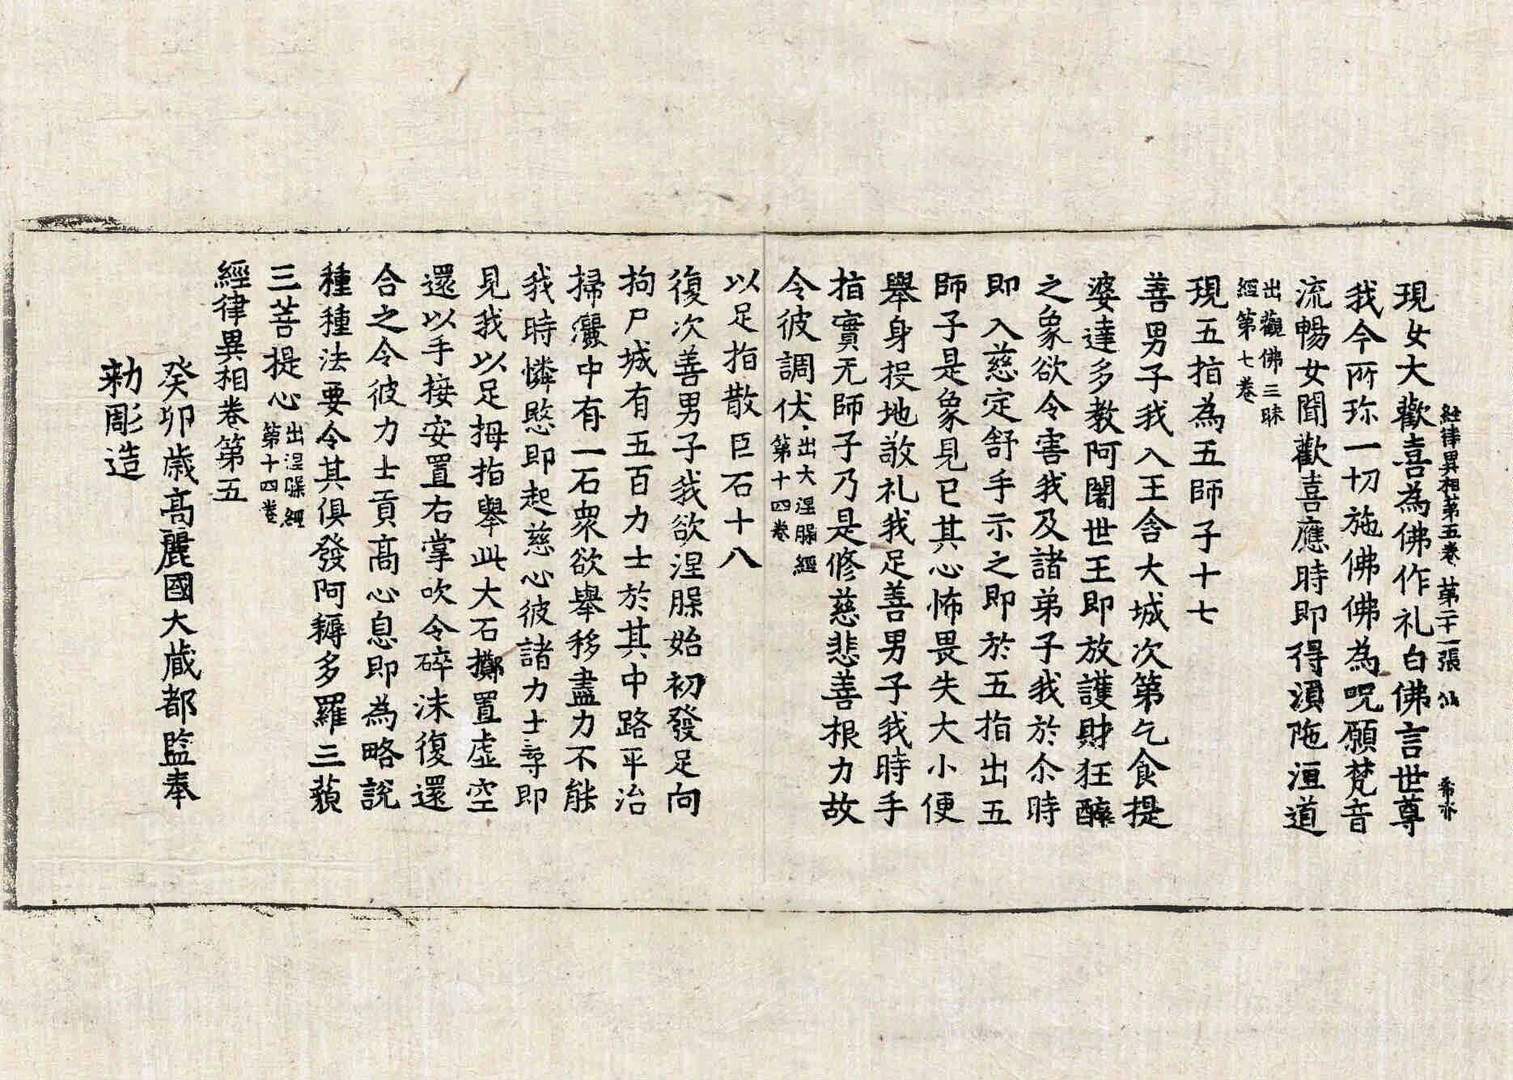 經律異相第五卷 第二十一張 仙 希水
現女大歡喜為佛作礼白佛言世尊
我今所珎一切施佛佛為呪願梵音
流暢女聞歡喜應時即得湏陁洹道
出觀佛三昧
經第七卷
現五指為五師子十七
善男子我入王舍大城次第乞食提
婆達多教阿闍世王即放護財狂醉
之象欲令害我及諸弟子我於尒時
即入慈定舒手示之即於五指出五
師子是象見已其心怖畏失大小便
舉身投地敬礼我足善男子我時手
指實无師子乃是修慈悲善根力故
令彼調伏出大涅槃經
第十四卷
以足指散巨石十八
復次善男子我欲涅槃始初發足向
拘尸城有五百力士於其中路平治
掃灑中有一石衆欲舉移盡力不能
我時憐愍即起慈心彼諸力士尋即
見我以足拇指舉此大石擲置虛空
還以手接安置右掌吹令碎沫復還
合之令彼力士貢高心息即為略說
種種法要令其俱發阿耨多羅三藐
三菩提心出涅槃經
第十四卷
經律異相卷第五
癸卯歲高麗國大藏都監奉
勑彫造